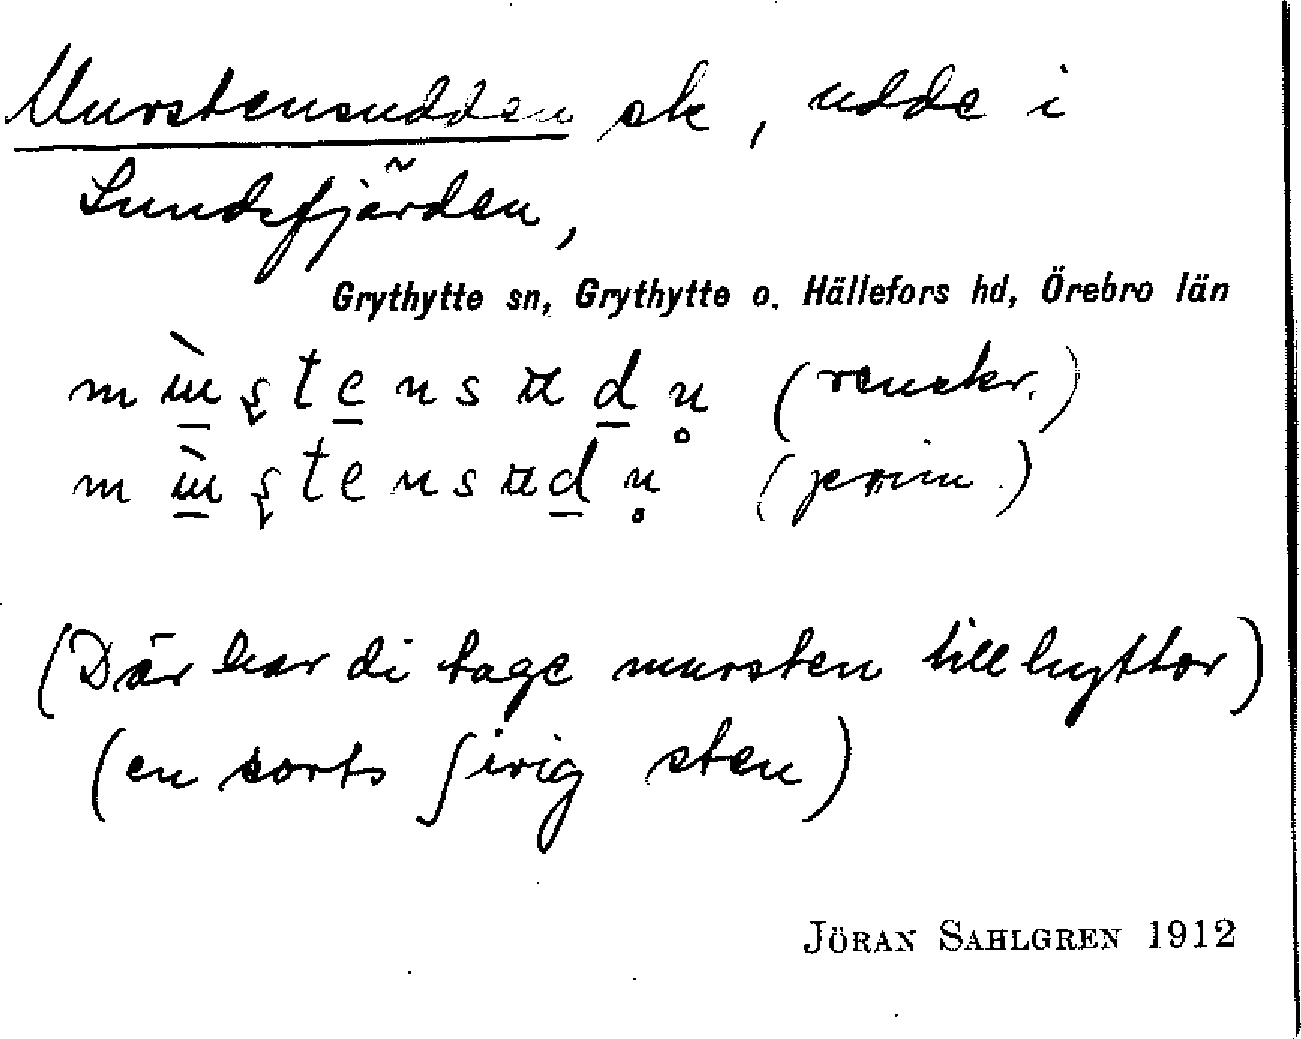 Murstensudden sk, udde i
Sundsfjärden,
Grythytte sn, Grythytte o. Hällefors hd, Örebro län
(renskr.)
(prim.)
(Där har di tage mursten till hyttor)
(en sorts ſirig sten)
JÖRAN SAHLGREN 1912